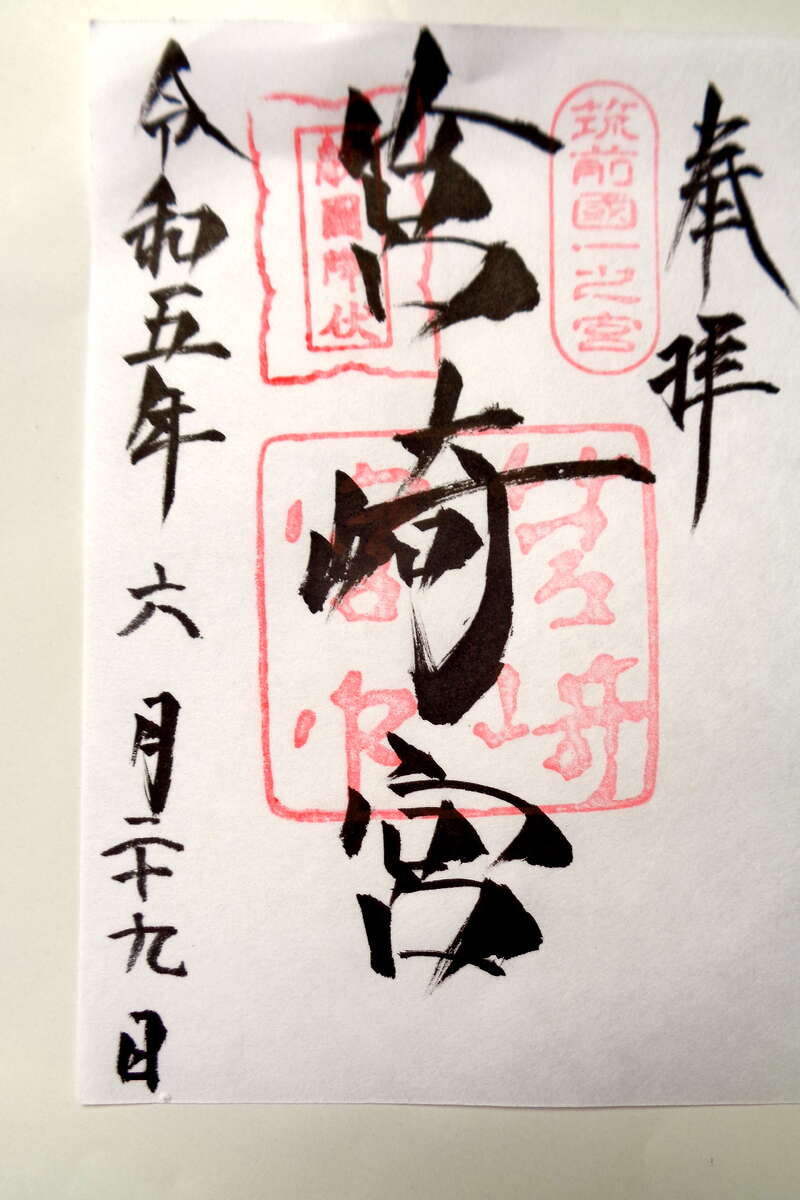 奉拝
筑前國一之宮
筥崎宮
敵國降伏
筥崎宮印
令和五年六月二十九日